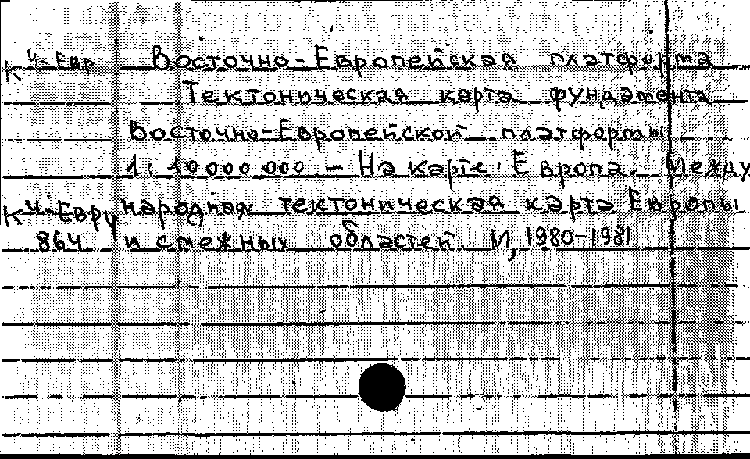 К 4-Евр Восточно-Европейская платформа
Тектоническая карта фундамента
Восточно-Европейской платформы
1:10000000 - На карте: Европа. Между
К 4-Евру народная тектоническая карта Европы
864 и смежных областей. М, 1980-1981